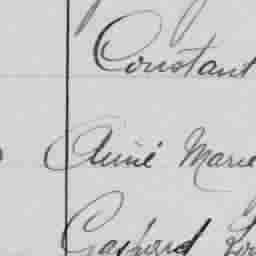 Constant
Aimé Marie
Gaspard